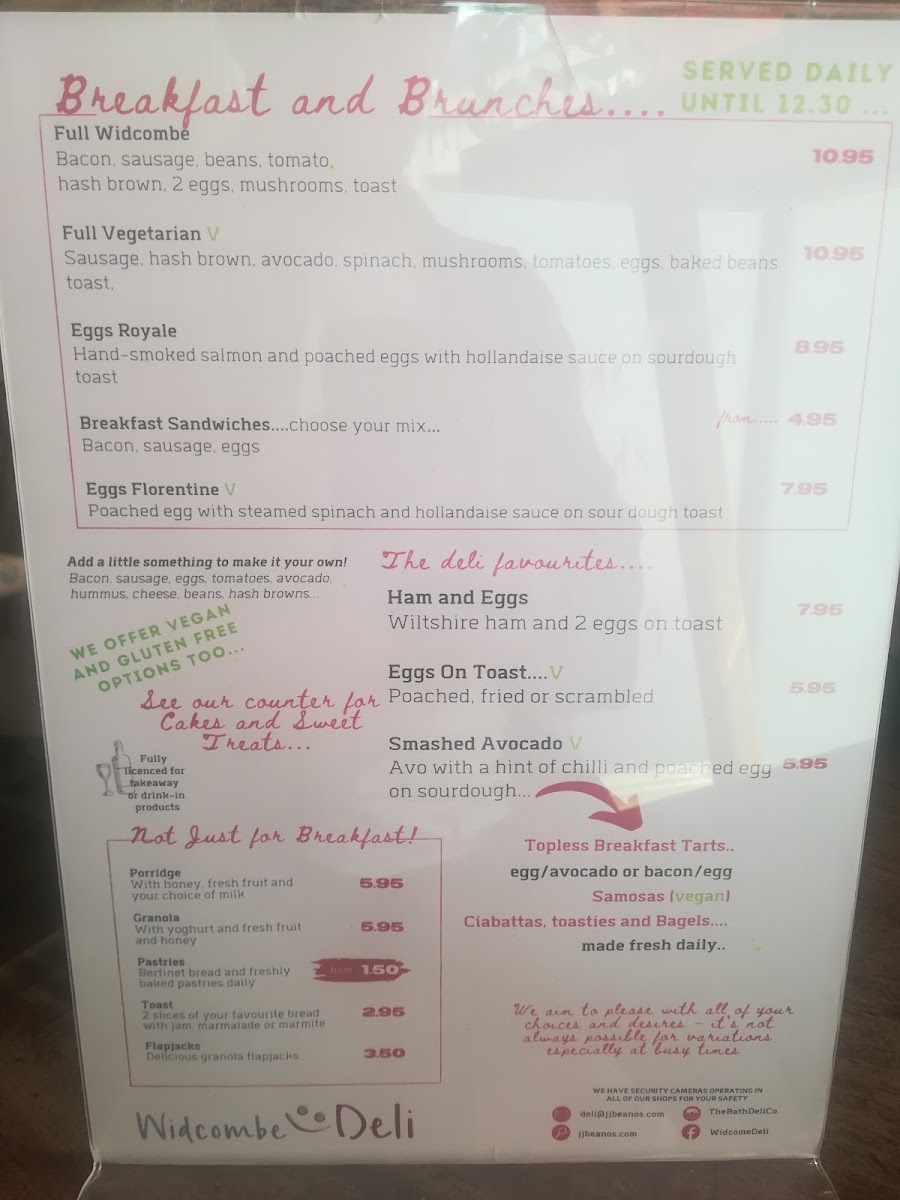 Breakfast and Brunches....
SERVED DAILY
UNTIL 12.30 ...
Full Widcombe
Bacon, sausage, beans, tomato,
hash brown, 2 eggs, mushrooms, toast
10.95
Full Vegetarian V
Sausage, hash brown, avocado, spinach, mushrooms, tomatoes, eggs, baked beans
toast,
10.95
Eggs Royale
Hand-smoked salmon and poached eggs with hollandaise sauce on sourdough
toast
8.95
Breakfast Sandwiches....choose your mix...
Bacon, sausage, eggs
from..... 4.95
Eggs Florentine V
Poached egg with steamed spinach and hollandaise sauce on sour dough toast
7.95
Add a little something to make it your own!
Bacon, sausage, eggs, tomatoes, avocado,
hummus, cheese, beans, hash browns...
WE OFFER VEGAN
AND GLUTEN FREE
OPTIONS TOO...
See our counter for
Cakes and Sweet
Treats...
Fully
licenced for
takeaway
or drink-in
products
The deli favourites....
Ham and Eggs
Wiltshire ham and 2 eggs on toast
7.95
Eggs On Toast....V
Poached, fried or scrambled
5.95
Smashed Avocado V
Avo with a hint of chilli and poached egg
on sourdough...
5.95
Not Just for Breakfast!
Porridge
With honey, fresh fruit and
your choice of milk
5.95
Granola
With yoghurt and fresh fruit
and honey
5.95
Pastries
Bertinet bread and freshly
baked pastries daily
from 1.50
Toast
2 slices of your favourite bread
with jam, marmalade or marmite
2.95
Flapjacks
Delicious granola flapjacks
3.50
Topless Breakfast Tarts..
egg/avocado or bacon/egg
Samosas (vegan)
Ciabattas, toasties and Bagels....
made fresh daily..
We aim to please with all of your
choices and desires - it's not
always possible for variations
especially at busy times
WE HAVE SECURITY CAMERAS OPERATING IN
ALL OF OUR SHOPS FOR YOUR SAFETY
deli@jjbeanos.com
TheBathDeliCo
jjbeanos.com
WidcomeDeli
Widcombe Deli